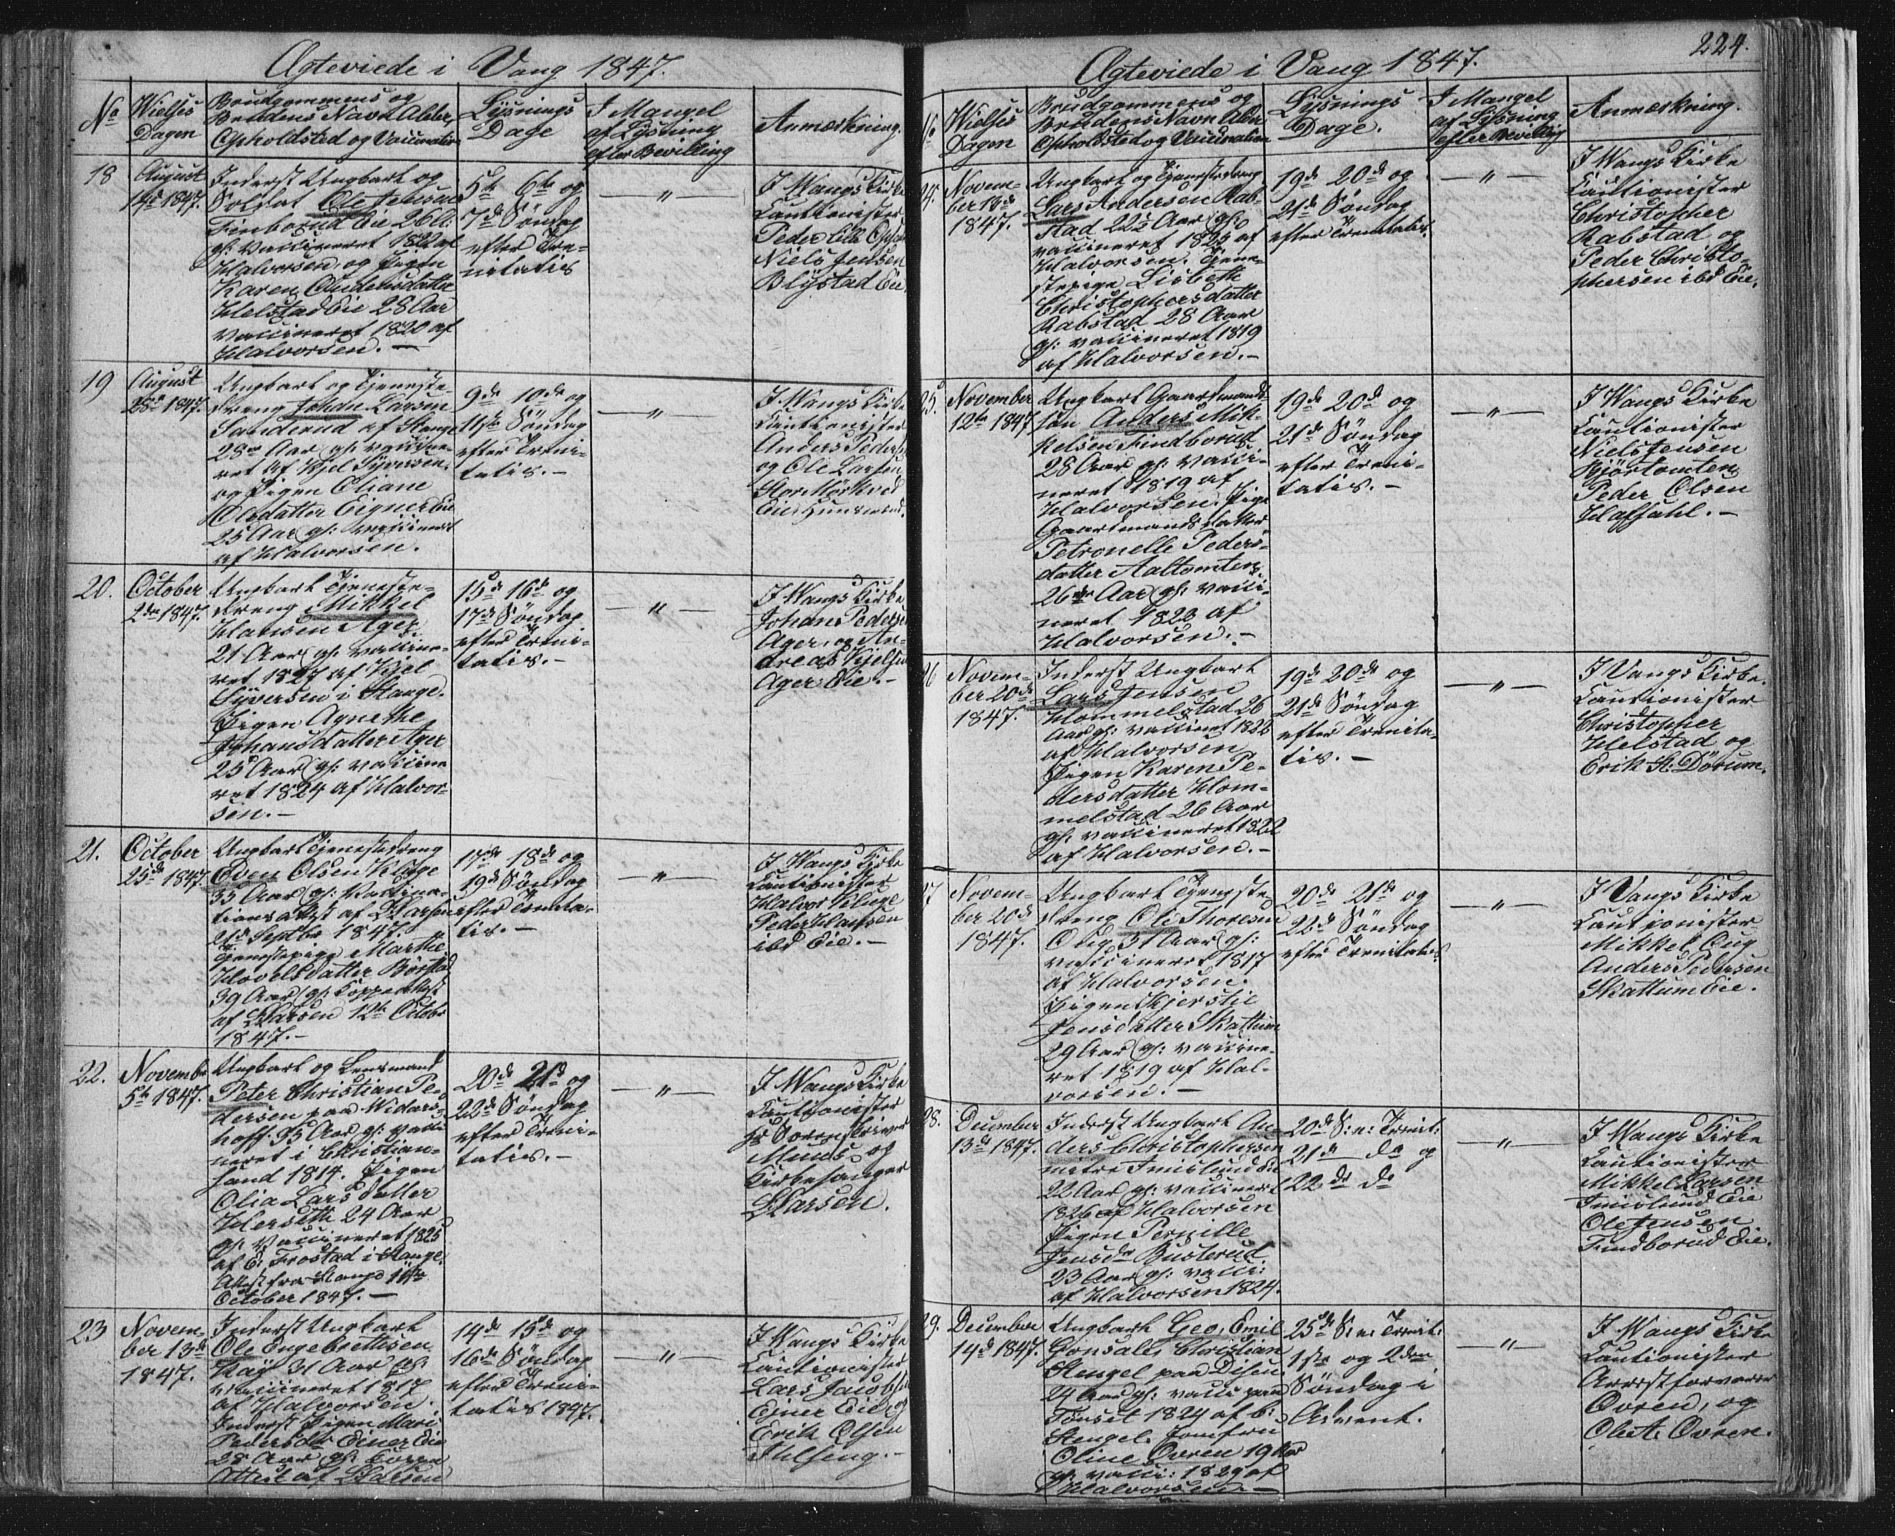 Ægteviede i Vang 1847.
No
Vielses
Dagen
Brudgommens og
Brudens Navn Alder,
Opholdsted og Vaccination
Lysnings
Dage
I Mangel
af Lysning
efter Bevilling
Anmærkning.
18
August
14de 1847.
Inderst Ungkarl og
Soldat Ole Jensen
Finborud Eie 26 A.
gl: vaccineret 1822 af
Halvorsen, og Pigen
Karen Andersdatter
Helstad Eie 28 Aar
vaccineret 1820 af
Halvorsen. —
5te 6te og
7de Søndag
efter Tri-
nitatis
— " —
I Wangs Kirke
Cautionister
Peder
Niels Jensen
Blystad Eie.
19
August
28de 1847.
Ungkarl og Tjeneste-
dreng Johan Larsen
Sanderud af Stange
28 Aar gl: vaccine-
ret af Kjel Syversen
og Pigen Oliane
Olsdatter Eigner Eie
25 Aar gl: vaccineret
af Halvorsen.
9de 10de og
11te Søndag
efter Treni-
tatis. —
— " —
I Wangs Kirke
Cautionister
Anders Peders
og Ole Larsen
Stor Mørkved
Eie
20.
October
2den 1847.
Ungkarl Tjeneste-
dreng Mikkel
Hansen Ager
21 Aar gl: vaccine-
ret 1827 af Kjel
Syversen i Stange.
Pigen Agnethe
Johansdatter Ager
25 Aar gl: vaccine
ret 1824 af Halvor-
sen. —
15de 16de og
17de Søndag
efter Treni-
tatis. —
— " —
I Wangs Kirke
Johan Pedersen
Ager, og An-
dreas Kjelsen
Ager Eie. —
21.
October
25de 1847
Ungkarl Tjenestedreng
Even Olsen Kluge
33 Aar gl: Vaccina-
tions Attest af Larsen
21de Septbr 1847.
Tjenestepige Marthe
Hovelsdatter Børstad
39 Aar gl: Koppeattest
af Larsen 12te Octobr
1847. —
17de 18de og
19de Søndag
efter Trenita-
tis. —
— " —
I Wangs Kirke
Cautionister
Halvor Kluge
Peder Hansen
ibd Eie. —
22.
Novembe
5te 1847.
Ungkarl og Lensmand
Peter Christian Pe-
dersen paa Widars-
hoff 35 Aar gl: vacci
neret i Christian-
sand 1814. Pigen
Olia Larsdatter
Herseth 24 Aar
gl: Vaccineret 1825
af E: Frostad i Stange.
Attest fra Stange 16de
October 1847. —
20de 21de og
22de Søndag
efter Treni-
tatis. —
— " —
I Wangs Kirke
Cautionister
Hr Sorenskriver
Munch og
Kirkesanger
Larsen.
23
Novem-
ber 13de
1847.
Inderst Ungkarl
Ole Engebrethsen
Kaÿ 31 Aar gl:
vaccineret 1817
af Halvorsen.
Inderst Pigen Mari
Pedersdr Einer Eie
28 Aar gl:
Attest af Larsen
14de 15de og
16de Søndag
efter Treni-
tatis 1847.
— " —
I Wangs Kirke
Cautionister
Lars Jacobsen
Ejner Eie og
Erik Olsen
Julseng. —
Ægteviede i Vang 1847.
224.
No.
Vielses
Dagen
Brudgommens og
Brudens Navn Alder
Opholdsted og Vaccination
Lysnings
Dage.
I Mangel
af Lysning
efter Bevilling
Anmærkning.
24.
Novem-
ber 13de
1847.
Ungkarl og Tjenestedreng
Lars Andersen Rab-
stad 22 Aar gl:
vaccineret 1825 af
Halvorsen. Tjene-
stepige Lisbeth
Christophersdatter
Rabstad 28 Aar
gl: vaccineret 1819
af Halvorsen. —
19de 20de og
21de Søndag
efter Trenitatis.
— " —
I Wangs Kirke
Cautionister
Christopher
Rabstad og
Peder Christo-
phersen ibd Eie.
25.
November
12te 1847
Ungkarl Gaardmands
søn Anders Mik-
kelsen Findborud
28 Aar gl: vacci-
neret 1819 af
Halvorsen. Pige
Gaardmandsdatter
Petronelle Peders-
datter Aaltomten
26 Aar gl: vacci-
neret 1822 af
Halvorsen. —
19de 20de og
21de Søndag
efter Treni-
tatis. —
— " —
I Wangs Kirke
Cautionister
Niels Jensen
Bjørtomten
Peder Olsen
Hafsahl. —
26
Novem-
ber 20de
1847.
Inderst Ungkarl
Lars Jensen
Hommelstad 26
Aar gl: vaccineret 1822
af Halvorsen
Pigen Karen Pe-
dersdatter Hom-
melstad 26 Aar
gl: vaccineret 1822
af Halvorsen. —
19de 20de og
21de Søndag
efter Trenita-
tis. —
— " —
I Vangs Kirke.
Cautionister
Christopher
Helstad og
Erik H: Dørum.
27
Novem-
ber 20de
1847.
Ungkarl Tjeneste
dreng Ole Thoresen
Olig 31 Aar gl:
vaccineret 1817
af Halvorsen.
Pigen Kjerstie
Jensdatter Skattum
29 Aar gl: vaccine-
ret 1819 af Hal-
vorsen. —
20de 21de og
22de Søndag
efter Trenitatis
— " —
I Vangs Kirke
Cautionister
Mikkel Aug
Anders Pedersen
Skattum Eie.
28.
December
13de 1847.
Inderst Ungkarl An-
ders Christophersen
Imislund Eie
22 Aar gl: vaccineret
1826 af Halvorsen
Pigen Pernille
Jensdr Busterud
23 Aar gl: vacci:
af Halvorsen 1824.
20de S: e: Trenit:
21de do og
22de do
— " —
I Wangs Kirke
Cautionister
Mikkel Larsen
Imislund Eie
Ole Jensen
Findborud Eie.
29.
December
14de 1847.
Ungkarl Geo. Emil
Gonsalls Christian
Stengel paa Disen
24 Aar gl: vacci paa
Tonset 1824 af C:
Stengel. Jomfru
Oline Ovren 19 Aar
gl: vacci: 1829 af
Halvorsen. —
25de S: e: Trenit:
1ste og 2den
Søndag i
Advent.
— " —
I Wangs Kirke
Cautionister
Arrestforvarer
Ovren, og
Ole A. Ovren.